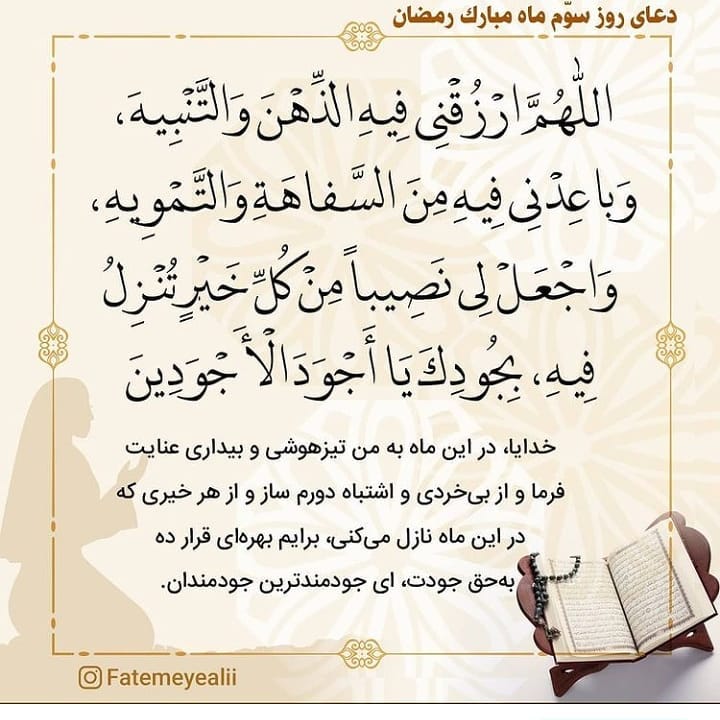 دعای روز سوّم ماه مبارك رمضان
اللّٰهُمَّ ارْزُقْنِى فِيهِ الذِّهْنَ وَالتَّنْبِيهَ،
وَباعِدْنِى فِيهِ مِنَ السَّفاهَةِ وَالتَّمْوِيهِ،
وَاجْعَلْ لِى نَصِيباً مِنْ كُلِّ خَيْرٍ تُنْزِلُ
فِيهِ، بِجُودِكَ يَا أَجْوَدَ الْأَجْوَدِينَ
خدایا، در این ماه به من تیزهوشی و بیداری عنایت
فرما و از بی‌خردی و اشتباه دورم ساز و از هر خیری که
در این ماه نازل می‌کنی، برایم بهره‌ای قرار ده
به‌حق جودت، ای جودمندترین جودمندان.
Fatemeyealii